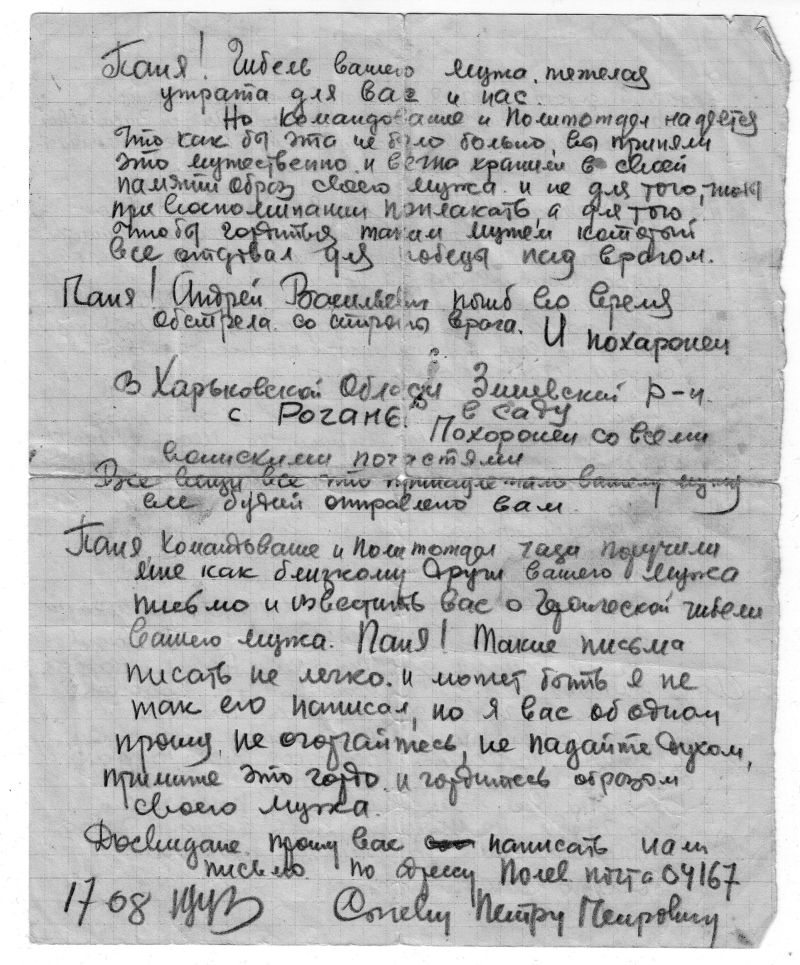 Паня! Гибель вашего мужа, тежелая
утрата для вас и нас.
Но командование и Политотдел надеется
что как бы эта не было больно, вы приняли
это мужественно и вечно хранили в своей
памяти образ своего мужа. и не для того, чтоб
при воспоминании поплакать, а для того,
чтобы гордиться таким мужем который
все отдовал для победы над врагом.
Паня! Андрей Васильевич погиб во время
обстрела со стороны врага. И похаронен
В Харьковской Области Змиевский р-н.
с. РОГАНЬ в саду
Похоронен со всеми
воискими почестями
Все вещи все что принадлежало вашему мужу
все будит отправлено вам.
Паня, Командование и Политотдел части поручили
мне как близкому другу вашего мужа
письмо и известить вас о Героической гибели
вашего мужа. Паня! Такие письма
писать не легко. и может быть я не
так его написал, но я вас об одном
прошу, не огорчайтесь, не падайте духом,
примите это гордо и гордитесь образом
своего мужа.
Досвидане. прошу вас написать нам
письмо по адресу Полев почта 04167
17 08 Петру Петровичу